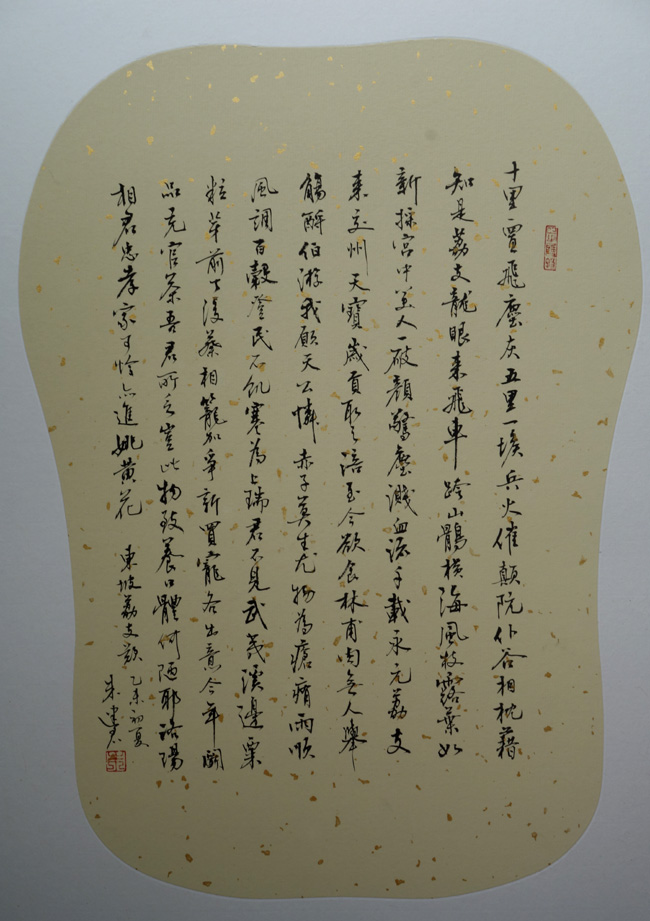 十里一置飛塵灰五里一堠兵火催顛阬仆谷相枕藉
知是荔支龍眼來飛車跨山鶻橫海風枝露葉如
新採宮中美人一破顏驚塵濺血流千載永元荔支
來交州天寶歲貢取之涪至今欲食林甫肉無人舉
觴酹伯游我願天公憐赤子莫生尤物為瘡痏雨順
風調百穀登民不飢寒為上瑞君不見武夷溪邊粟
粒芽前丁後蔡相籠加爭新買寵各出意今年鬭
品充官茶吾君所乏豈此物致養口體何陋耶洛陽
相君忠孝家可憐亦進姚黃花 東坡荔支歎 乙未初夏
朱建